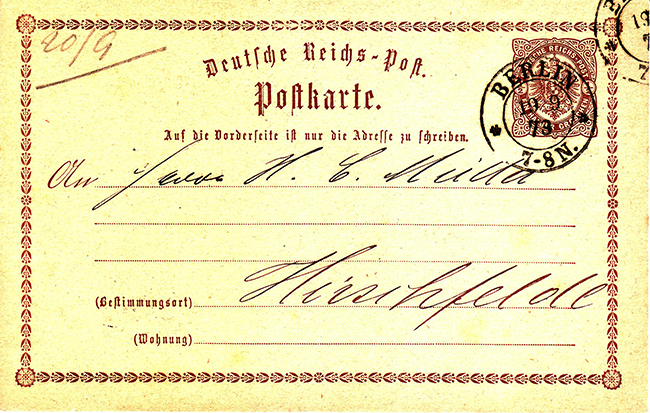 20/9
Deutsche Reichs-Post.
Postkarte.
BERLIN
19 9
73
7-8 N.
Auf die Vorderseite ist nur die Adresse zu schreiben.
An Herrn H. C. Müller
Hirschfelde
(Bestimmungsort)
(Wohnung)